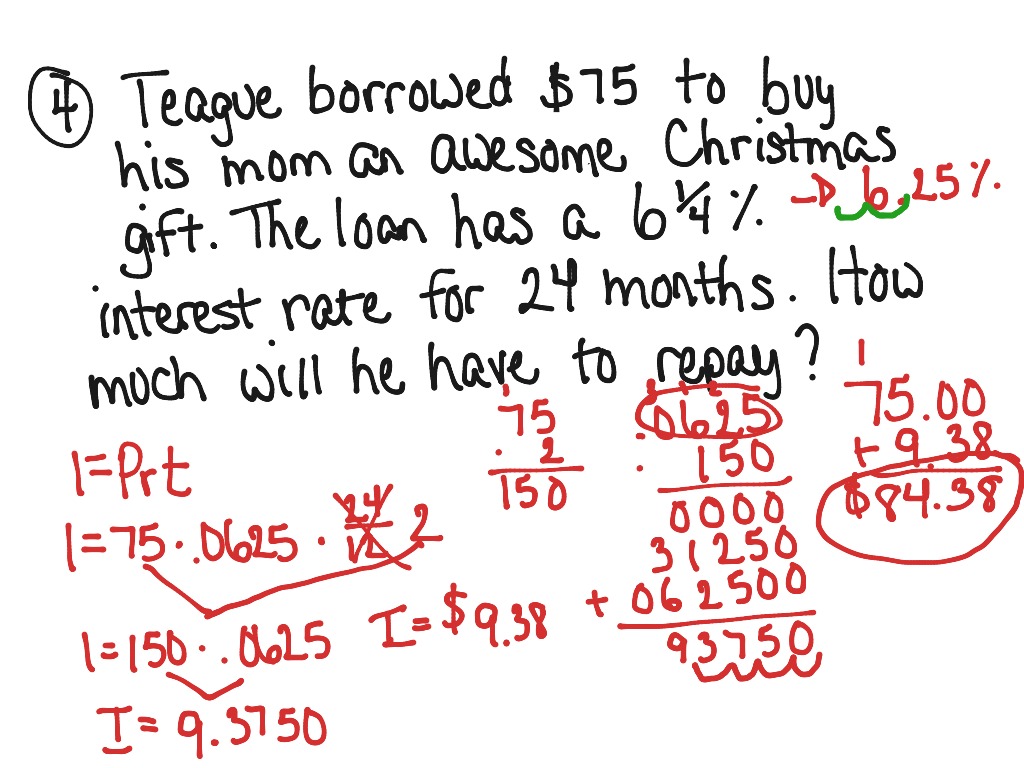 4 Teague borrowed $75 to buy
his mom an awesome Christmas
gift. The loan has a 6 1/4 % → 6.25%
interest rate for 24 months. How
much will he have to repay?
I=Prt
I=75 · .0625 · 24/12 2
I=150 · .0625
I= 9.3750
I= $9.38
1
75
· 2
150
0625
· 150
0000
31250
+ 062500
93750
1
75.00
+ 9.38
$84.38